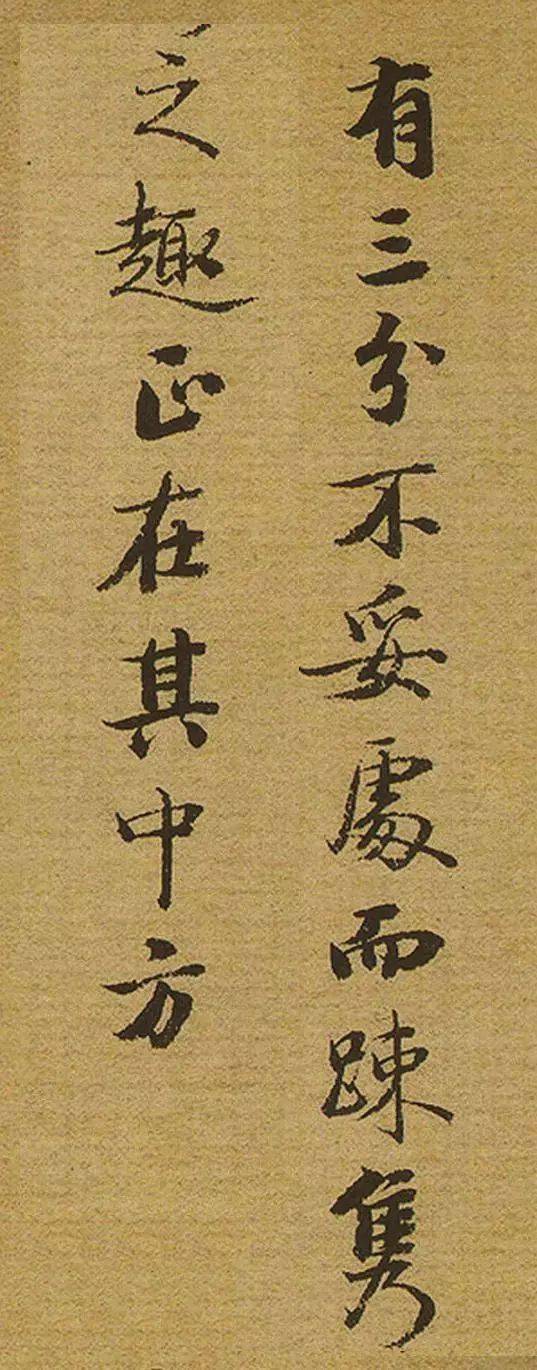 有三分不妥處而踈雋
之趣正在其中方